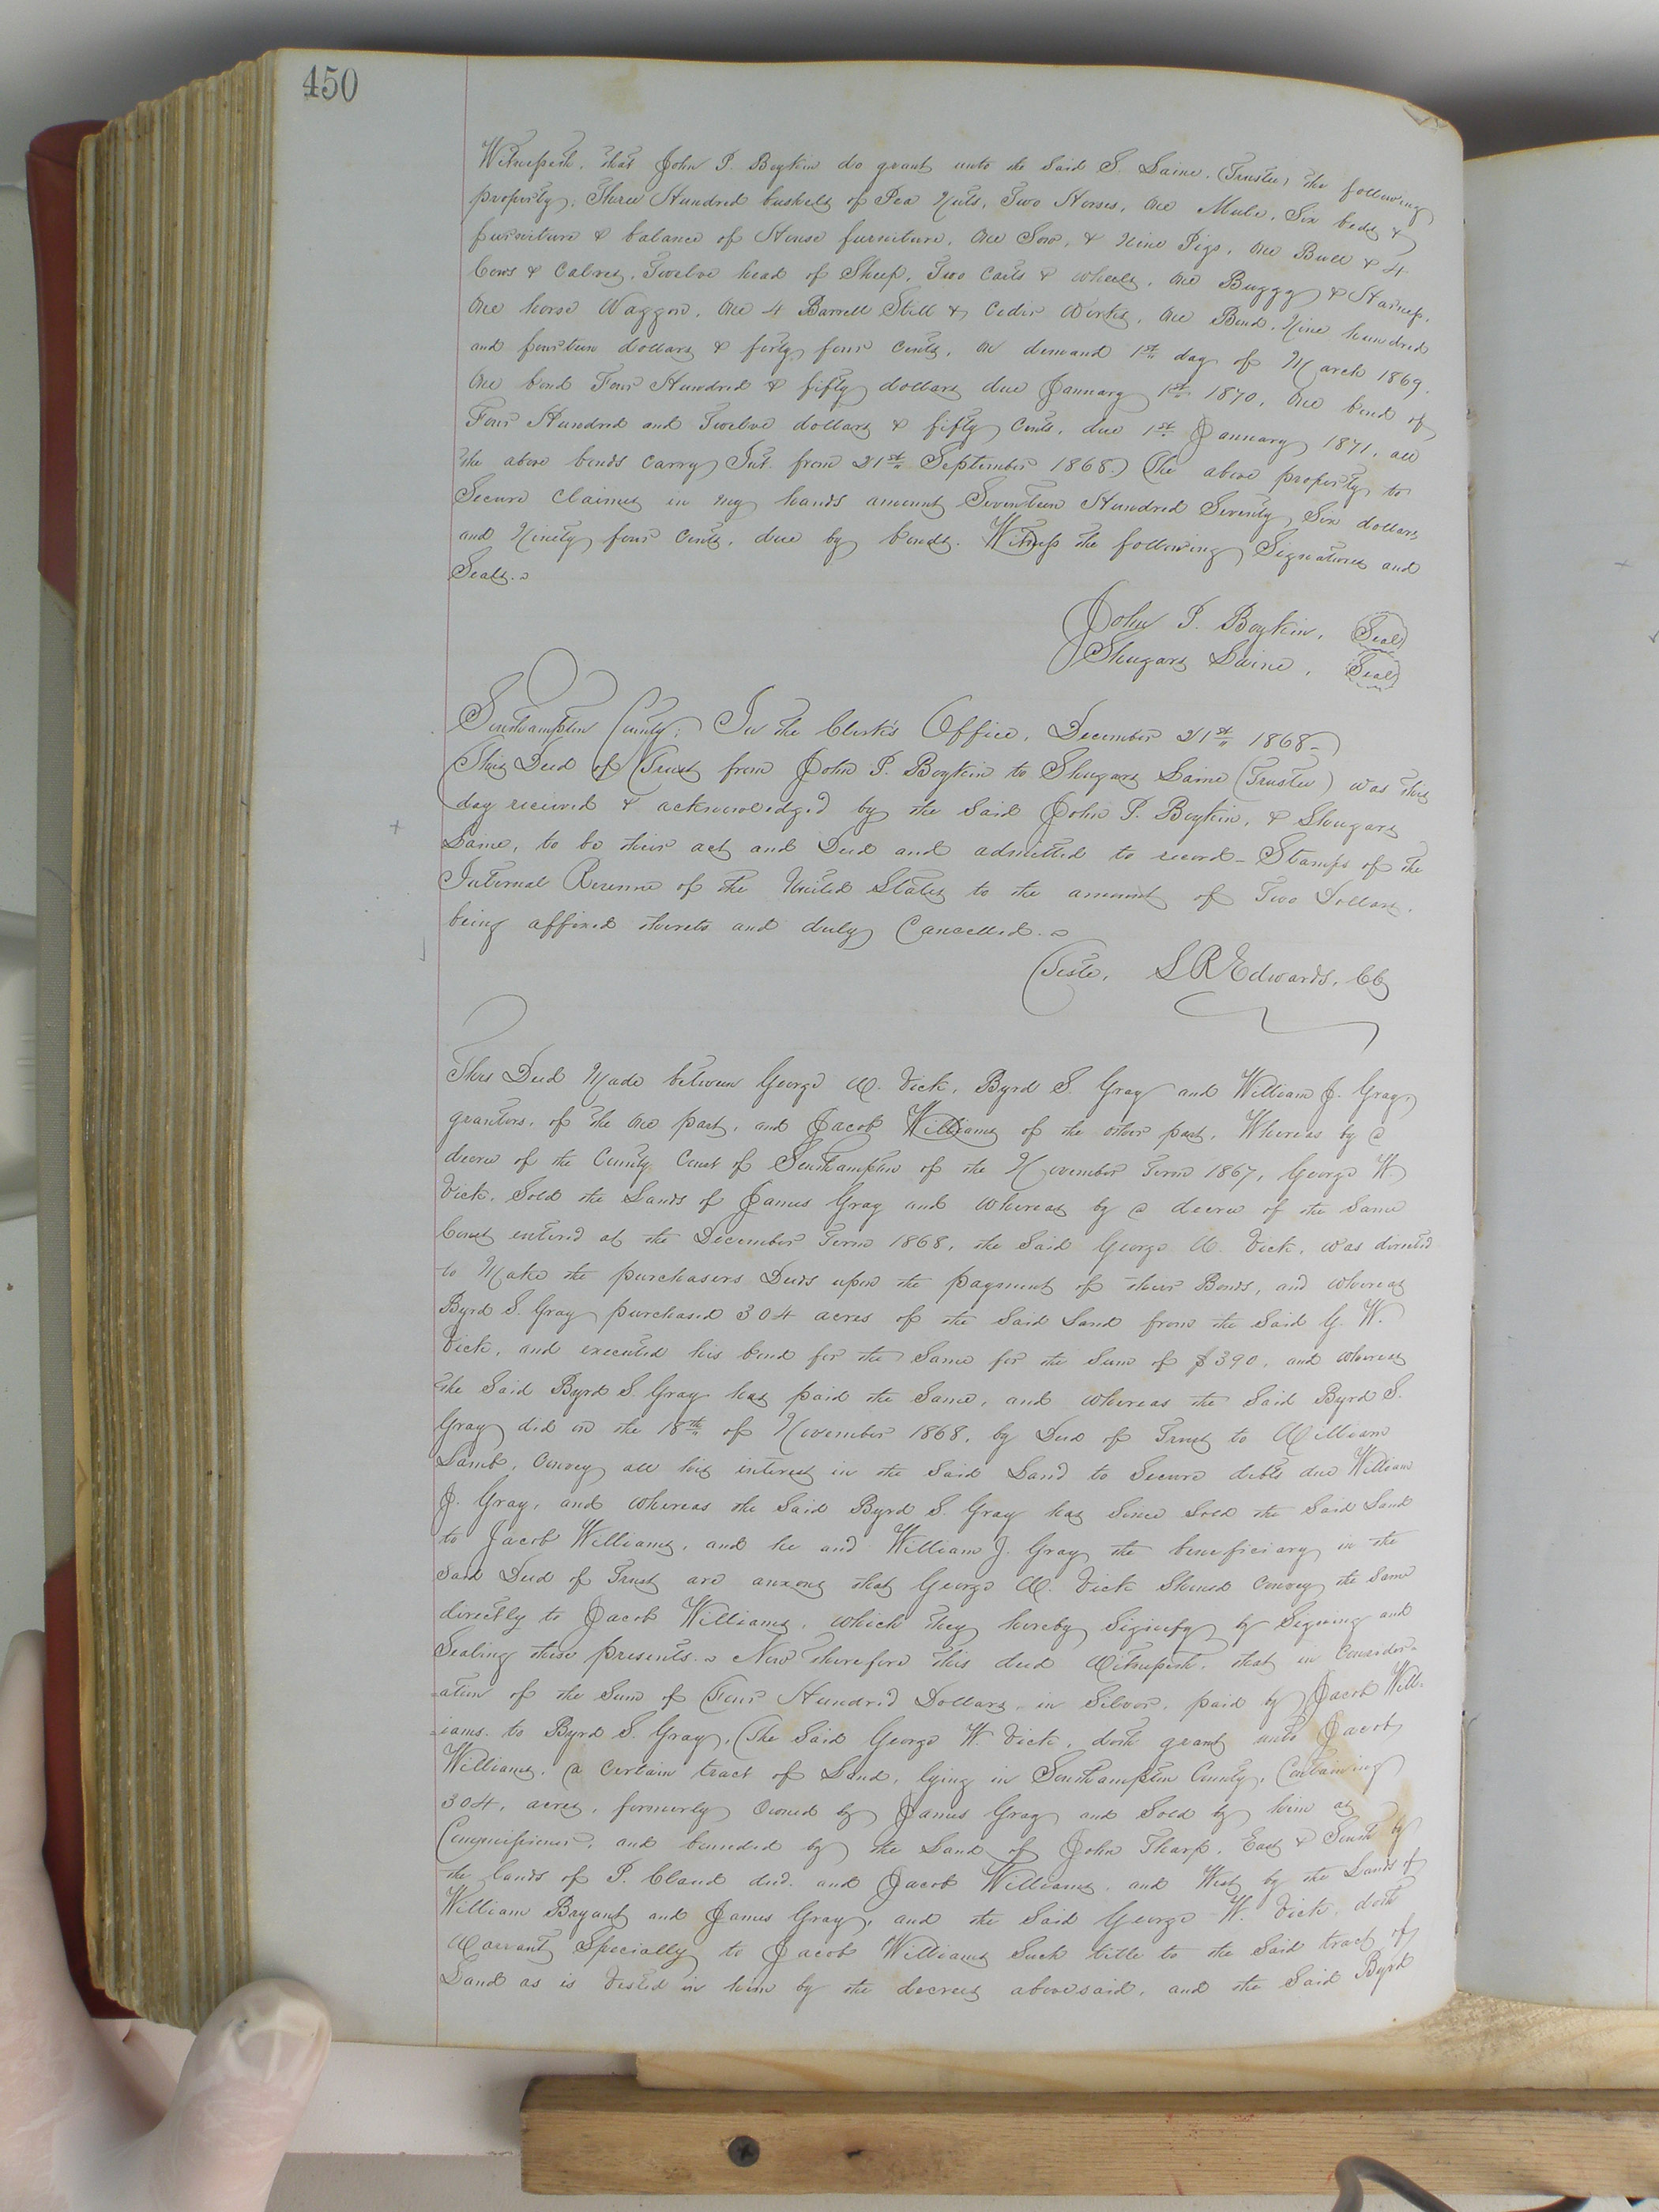 450
Witnesseth, that John P. Boykin do grant unto the Said S. Laine, (Trustee) the following
property, Three Hundred bushels of Pea Nuts, Two Horses, One Mule, Six beds &
furniture & balance of House furniture, One Sow, & Nine Pigs, One Bull & 4
Cows & Calves, Twelve head of Sheep, Two Carts & wheels, One Buggy & Harness,
One horse Waggon, One 4 Barrell Still & Cider Works, One Bond, Nine hundred
and fourteen dollars & forty four Cents, on demand 1st day of March 1869.
One bond Four Hundred & fifty dollars due January 1st 1870, One bond of
Four Hundred and Twelve dollars & fifty Cents, due 1st January 1871, all
the above bonds carry Int. from 21st September 1868.) The above property to
Secure Claims in my hands amount Seventeen Hundred Seventy Six dollars
and Ninety four Cents, due by bonds. Witness the following Signatures and
Seals.
John P. Boykin, Seal
Shugars Laine, Seal
Southampton County: In the Clerk's Office, December 21st 1868
This Deed of Trust from John P. Boykin to Shugars Laine (Trustee) was this
day recieved & acknowledged by the Said John P. Boykin, & Shugars
Laine, to be their act and Deed and admitted to record - Stamps of the
Internal Revenue of the United States to the amount of Two Dollars.
being affixed thereto and duly Cancelled.
Teste, L R Edwards, CC
This Deed Made between George W. Vick, Byrd S. Gray and William J. Gray,
grantors, of the One part, and Jacob Williams of the other part, Whereas by a
decree of the County Court of Southampton of the November Term 1867, George W.
Vick, Sold the Lands of James Gray and whereas by a decree of the Same
Court entered at the December Term 1868, the Said George W. Vick, was directed
to Make the purchasers Deeds upon the payment of their Bonds, and whereas
Byrd S. Gray purchased 304 acres of the Said Land from the Said G. W.
Vick, and executed his bond for the Same for the Sum of $390, and whereas
the Said Byrd S. Gray has paid the Same, and whereas the Said Byrd S.
Gray did on the 18th of November 1868, by Deed of Trust to William
Lamb, Convey all his interest in the Said Land to Secure debts due William
J. Gray, and whereas the Said Byrd S. Gray has Since Sold the Said Land
to Jacob Williams, and he and William J. Gray the beneficiary in the
Said Deed of Trust are anxous that George W. Vick Should Convey the Same
directly to Jacob Williams, which they hereby Signify by Signing and
Sealing these presents. Now Therefore this deed Witnesseth, that in Consider-
-ation of the Sum of Four Hundred Dollars, in Silver, paid by Jacob Will-
-iams. to Byrd S. Gray, The Said George W. Vick, doth grant unto Jacob
Williams, a Certain tract of Land, lying in Southampton County, Containing
304, acres, formerly Owned by James Gray and Sold by him as
Commissioner, and bounded by the Land of John Tharp, East & South by
the lands of P. Claud decd. and Jacob Williams, and West by the Lands of
William Bryant and James Gray, and the Said George W. Vick, doth
Warrant Specially to Jacob Williams Such title to the Said tract of
Land as is Vested in him by the decrees abovesaid, and the Said Byrd